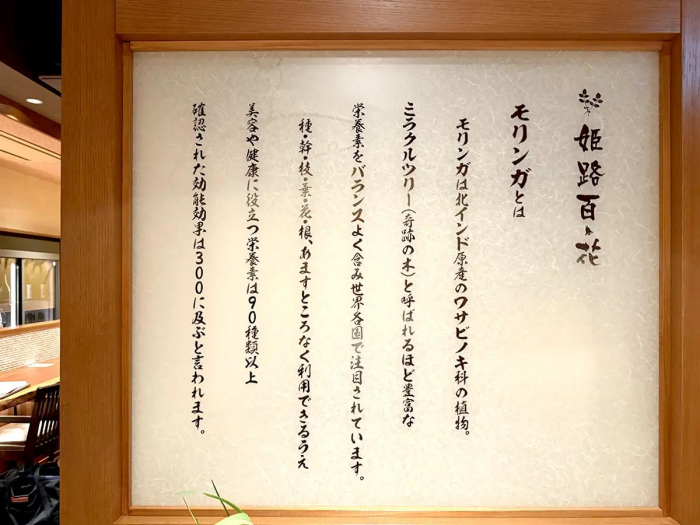 姫路百花
モリンガとは
モリンガは北インド原産のワサビノキ科の植物。
ミラクルツリー(奇跡の木)と呼ばれるほど豊富な
栄養素をバランスよく含み世界各国で注目されています。
種・幹・枝・葉・花・根、あますところなく利用できるうえ
美容や健康に役立つ栄養素は90種類以上
確認された効能効果は300に及ぶと言われます。